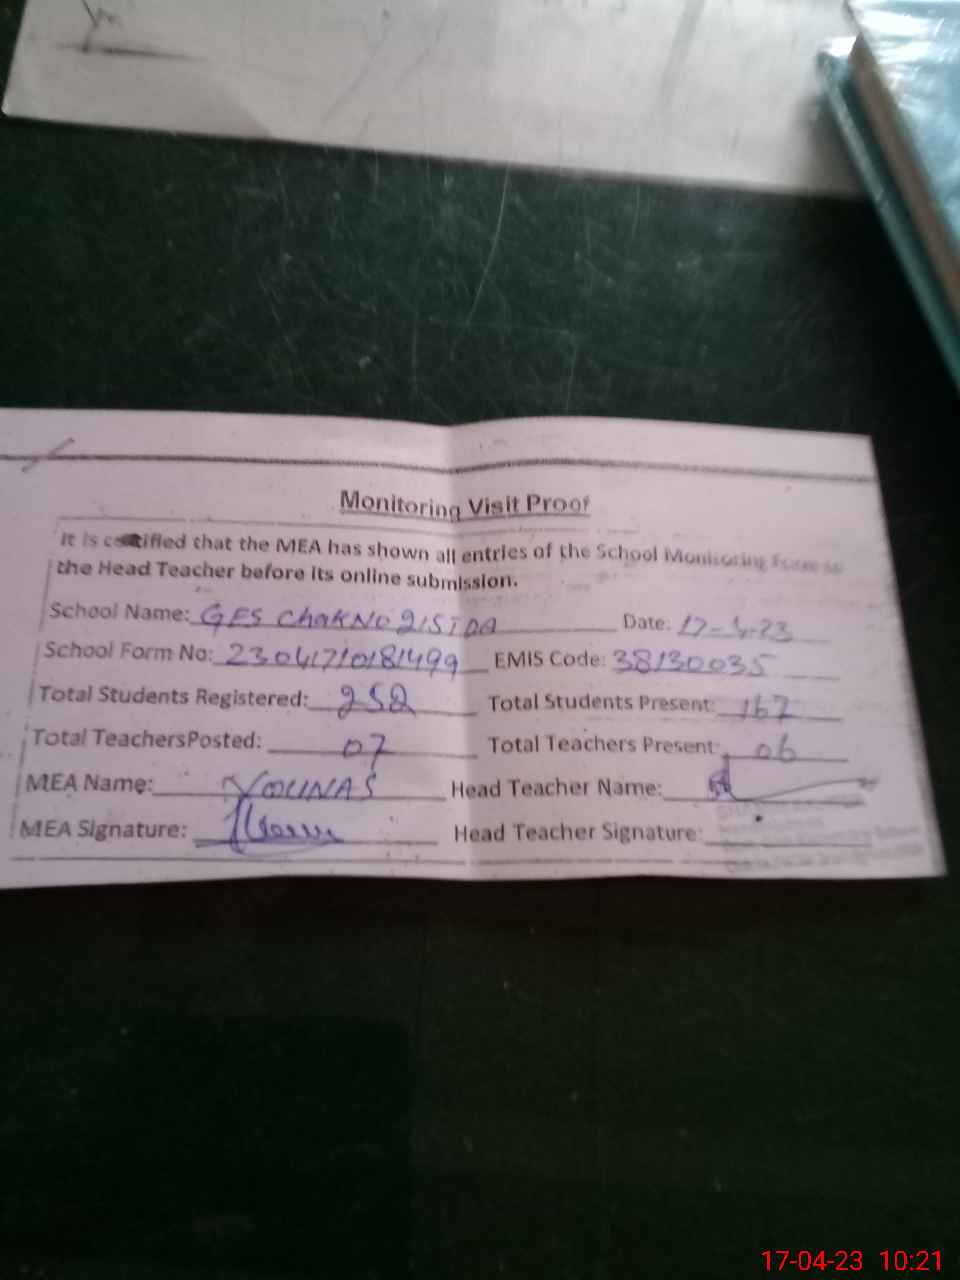 Monitoring Visit Proof
It is certified that the MEA has shown all entries of the School Monitoring Form to
the Head Teacher before its online submission.
School Name: GES Chak No 215 TDA Date: 17-4-23
School Form No: 23041710181499 EMIS Code: 38130035
Total Students Registered: 252 Total Students Present: 167
Total TeachersPosted: 07 Total Teachers Present: 06
MEA Name: YOUNAS Head Teacher Name:
MEA Signature: Head Teacher Signature:
17-04-23 10:21